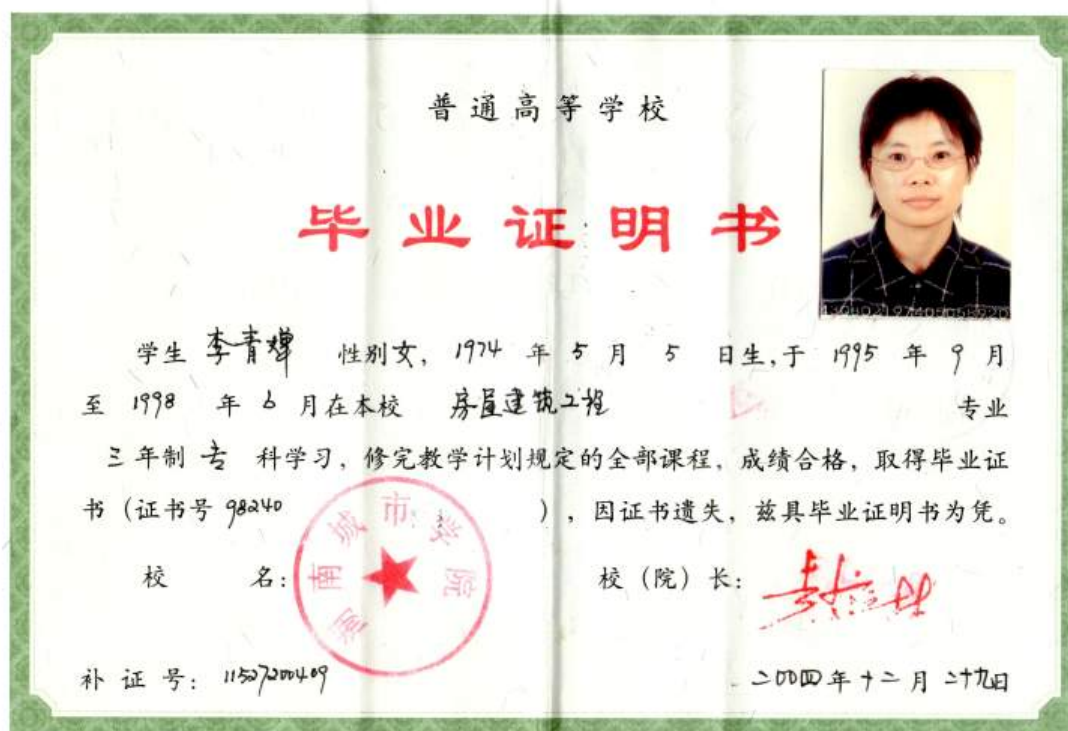 普通高等学校
毕业证明书
学生 李青 性别女, 1974 年 5 月 5 日生,于 1995 年 9 月
至 1998 年 6 月在本校 房屋建筑工程 专业
三年制 专 科学习,修完教学计划规定的全部课程,成绩合格,取得毕业证
书(证书号 98240 ),因证书遗失,兹具毕业证明书为凭。
校 名: 湖南城市学院 校(院)长:
补证号: 11527200409 二00四年十二月二十九日